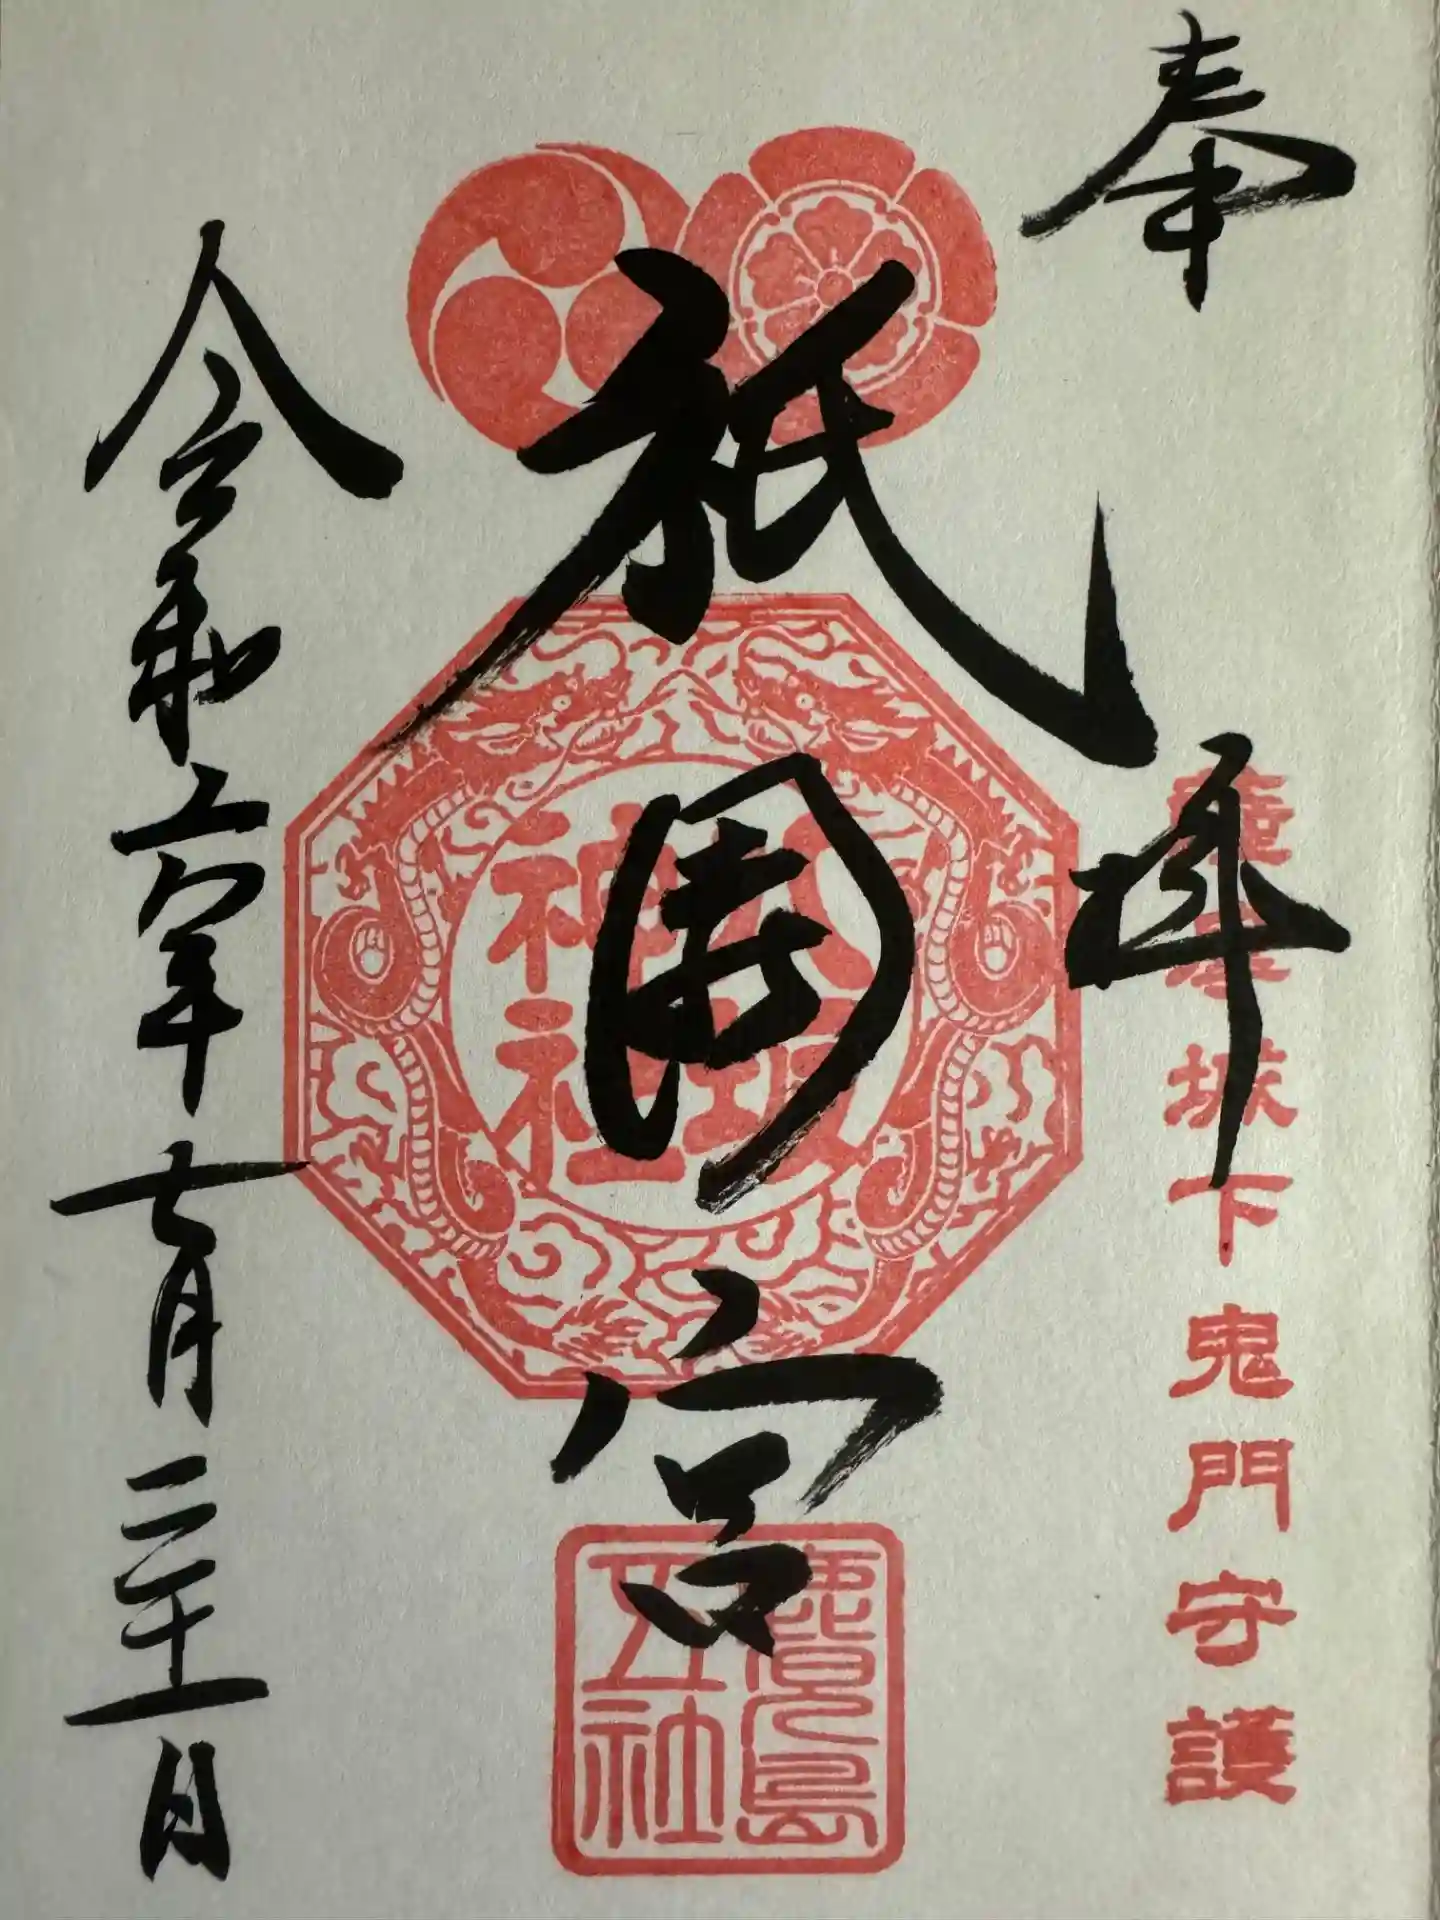 奉拝
城下鬼門守護
祇園宮
八坂
神社
鹿児島
五社
令和六年七月二十一日